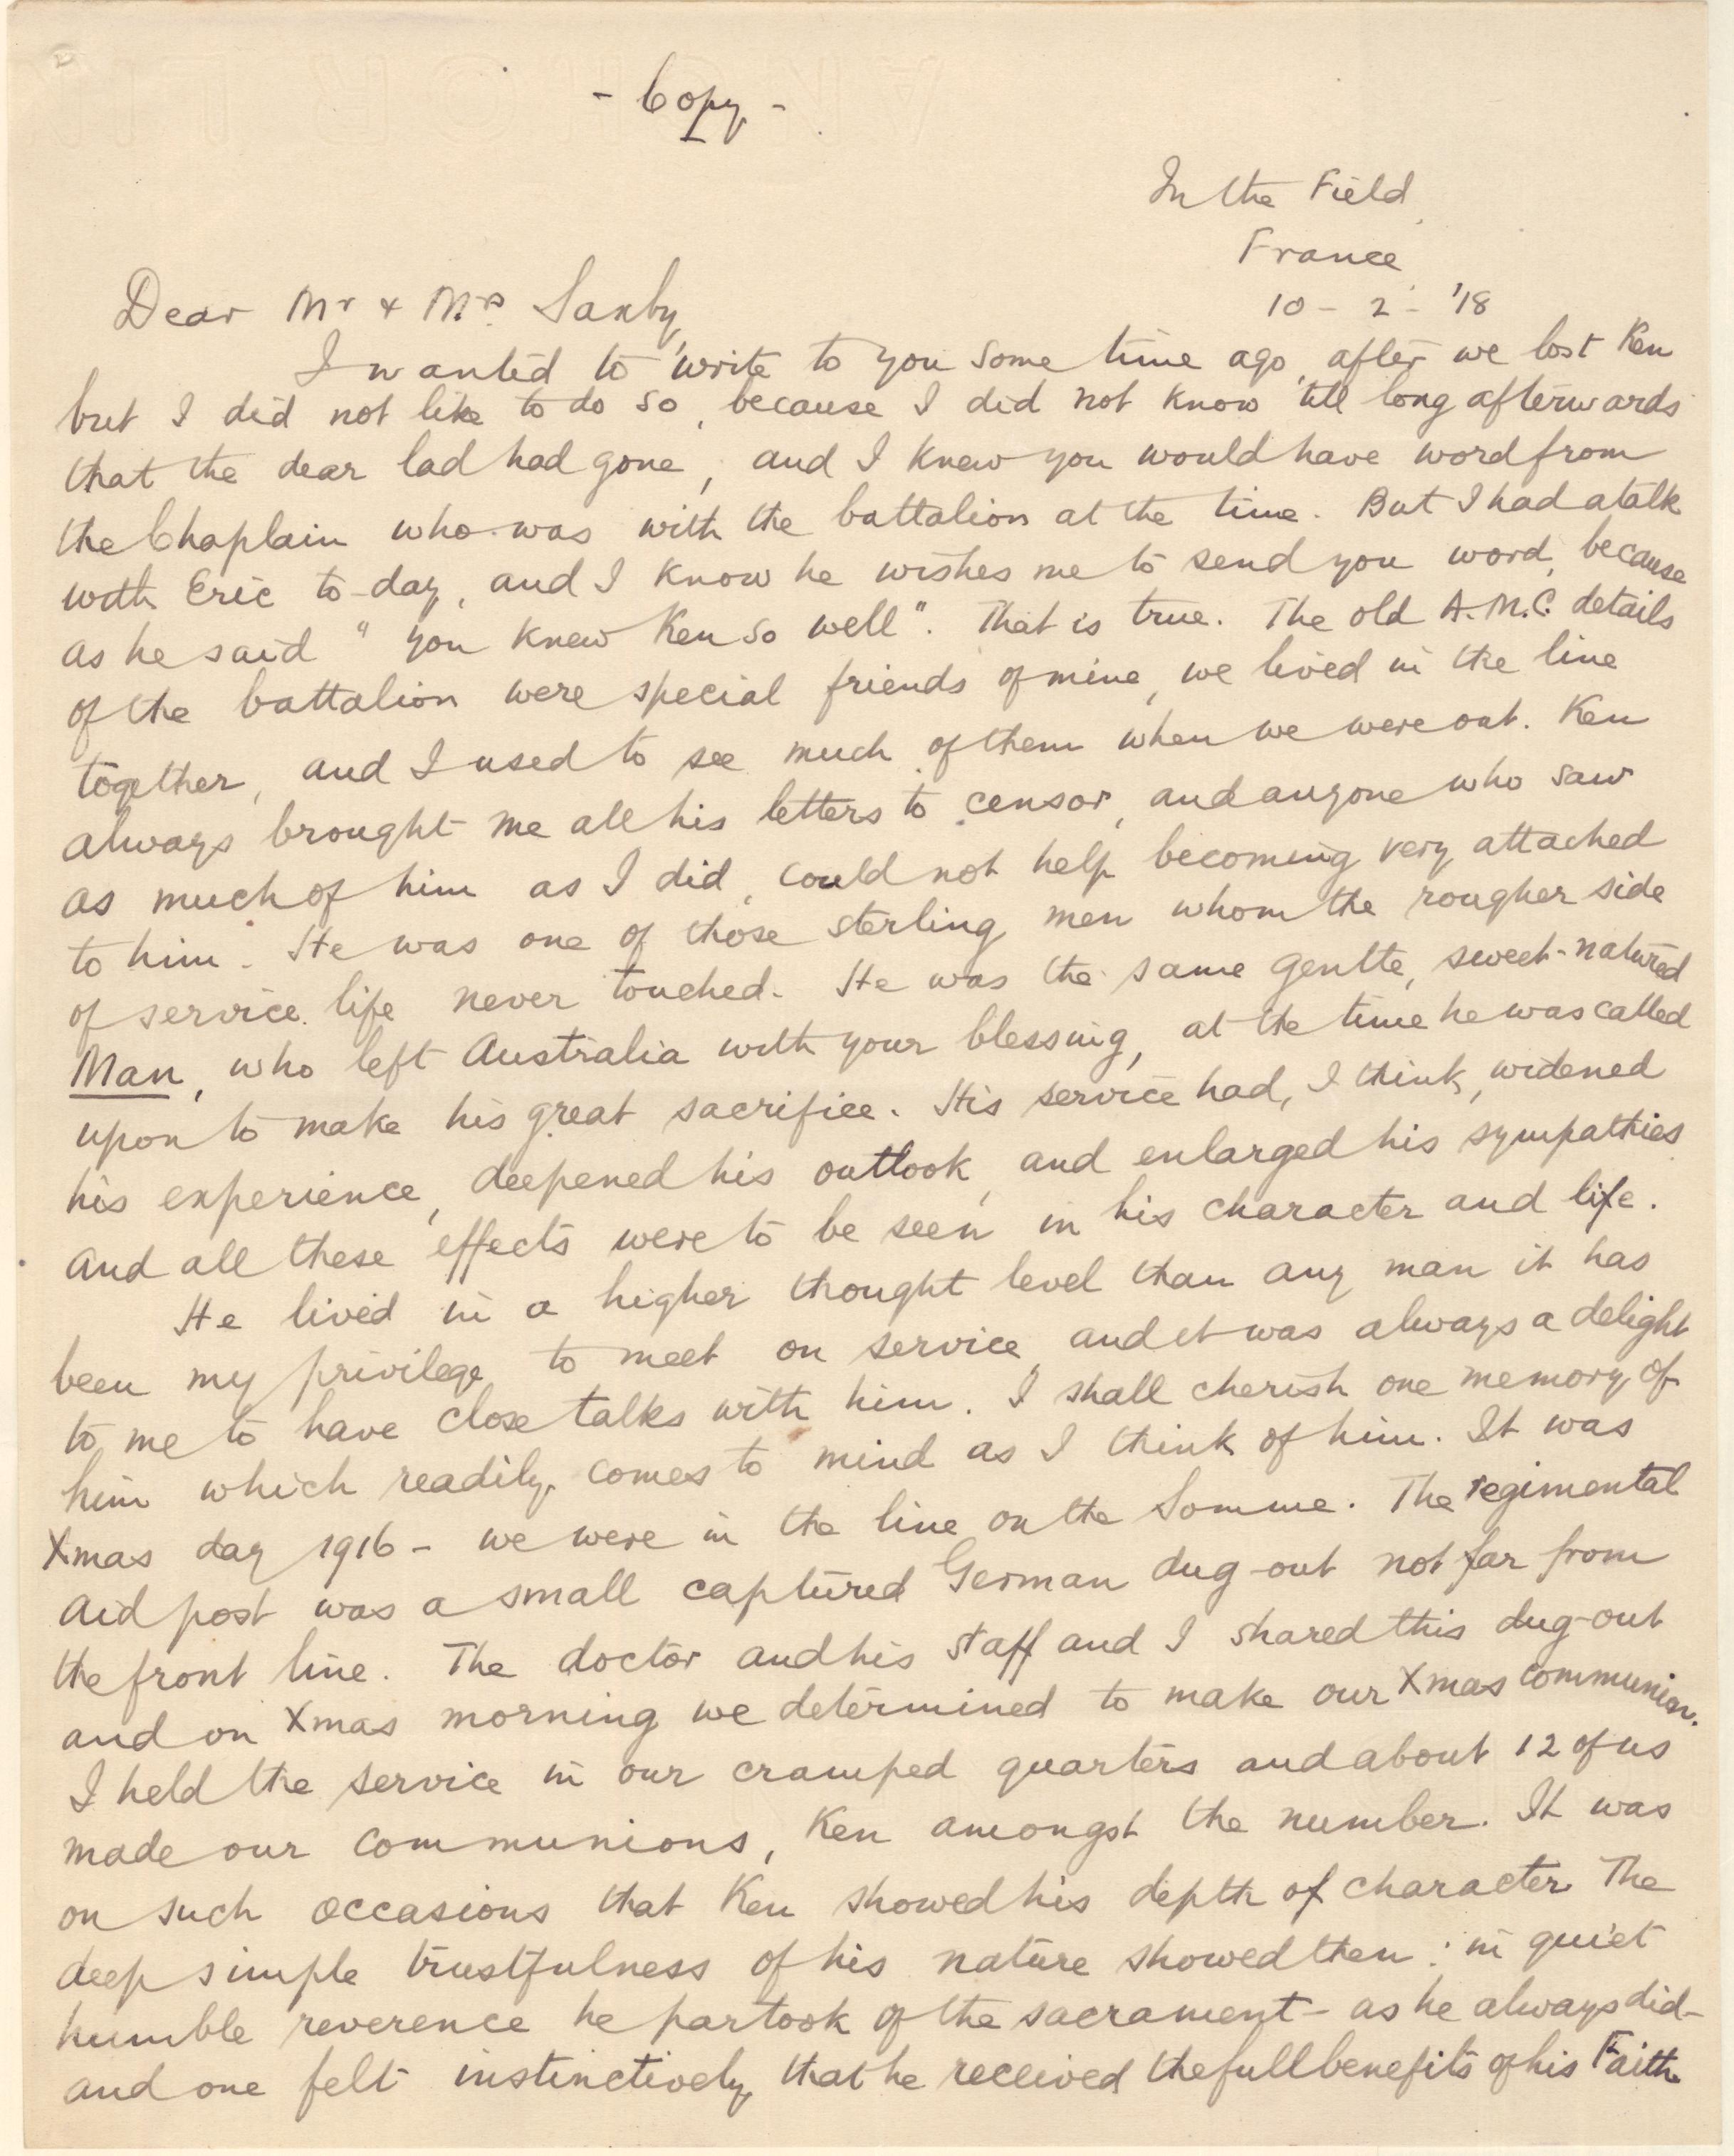 - Copy -
In the Field,
France
10 - 2 - '18
Dear Mr & Mrs Saxby,
I wanted to write to you some time ago, after we lost Ken
but I did not like to do so, because I did not know 'till long afterwards
that the dear lad had gone, and I knew you would have word from
the Chaplain who was with the battalion at the time. But I had a talk
with Eric to-day, and I know he wishes me to send you word, because
as he said "you knew Ken so well". That is true. The old A.M.C. details
of the battalion were special friends of mine, we lived in the line
together, and I used to see much of them when we were out. Ken
always brought me all his letters to censor, and anyone who saw
as much of him as I did, could not help becoming very attached
to him. He was one of those sterling men whom the rougher side
of service life never touched. He was the same gentle, sweet-natured
Man, who left Australia with your blessing, at the time he was called
upon to make his great sacrifice. His service had, I think, widened
his experience, deepened his outlook, and enlarged his sympathies
and all these effects were to be seen in his character and life.
He lived in a higher thought level than any man it has
been my privilege to meet on service, and it was always a delight
to me to have close talks with him. I shall cherish one memory of
him which readily comes to mind as I think of him. It was
Xmas day 1916 - we were in the line on the Somme. The regimental
aid post was a small captured German dug-out not far from
the front line. The doctor and his staff and I shared this dug-out
and on Xmas morning we determined to make our Xmas communion.
I held the service in our cramped quarters and about 12 of us
made our communions, Ken amongst the number. It was
on such occasions that Ken showed his depth of character. The
deep simple trustfulness of his nature showed then: in quiet
humble reverence he partook of the sacrament - as he always did -
and one felt instinctively that he received the full benefits of his Faith